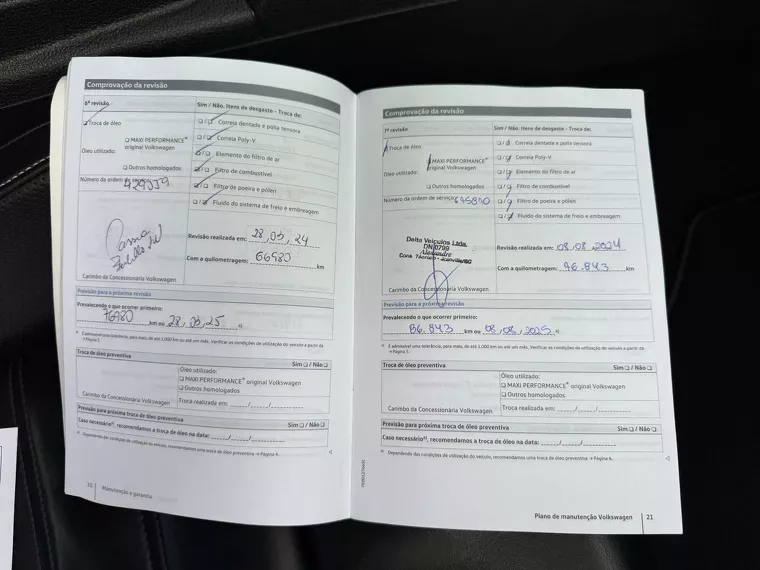 Comprovação da revisão
6ª revisão
Sim / Não. Itens de desgaste - Troca de:
Troca de óleo
Correia dentada e polia tensora
Óleo utilizado:
MAXI PERFORMANCE® original Volkswagen
Correia Poly-V
Elemento do filtro de ar
Outros homologados
Filtro de combustível
Número da ordem de serviço:
Filtro de poeira e pólen
Fluido do sistema de freio e embreagem
Revisão realizada em: 28, 03, 24
Com a quilometragem: 66980 km
Carimbo da Concessionária Volkswagen
Previsão para a próxima revisão
Prevalecendo o que ocorrer primeiro:
76980 km ou 28, 03, 25
É admissível uma tolerância, para mais, de até 1.000 km ou até um mês. Verificar as condições de utilização do veículo a partir da
→ Página 5.
Troca de óleo preventiva
Sim / Não
Óleo utilizado:
MAXI PERFORMANCE® original Volkswagen
Outros homologados
Carimbo da Concessionária Volkswagen
Troca realizada em:
Previsão para próxima troca de óleo preventiva
Sim / Não
Caso necessário, recomendamos a troca de óleo na data:
Dependendo das condições de utilização do veículo, recomendamos uma troca de óleo preventiva → Página 4.
Manutenção e garantia
Comprovação da revisão
7ª revisão
Sim / Não. Itens de desgaste - Troca de:
Troca de óleo
Correia dentada e polia tensora
Óleo utilizado:
MAXI PERFORMANCE® original Volkswagen
Correia Poly-V
Elemento do filtro de ar
Outros homologados
Filtro de combustível
Número da ordem de serviço:
Filtro de poeira e pólen
Fluido do sistema de freio e embreagem
Delta Veículos Ltda.
DN 0799
Alexandre
Cons. Técnico - Joinville/SC
Revisão realizada em: 08, 08, 2024
Com a quilometragem: 76.843 km
Carimbo da Concessionária Volkswagen
Previsão para a próxima revisão
Prevalecendo o que ocorrer primeiro:
86.843 km ou 08, 08, 2025
É admissível uma tolerância, para mais, de até 1.000 km ou até um mês. Verificar as condições de utilização do veículo a partir da
→ Página 5.
Troca de óleo preventiva
Sim / Não
Óleo utilizado:
MAXI PERFORMANCE® original Volkswagen
Outros homologados
Carimbo da Concessionária Volkswagen
Troca realizada em:
Previsão para próxima troca de óleo preventiva
Sim / Não
Caso necessário, recomendamos a troca de óleo na data:
Dependendo das condições de utilização do veículo, recomendamos uma troca de óleo preventiva → Página 4.
Plano de manutenção Volkswagen 21